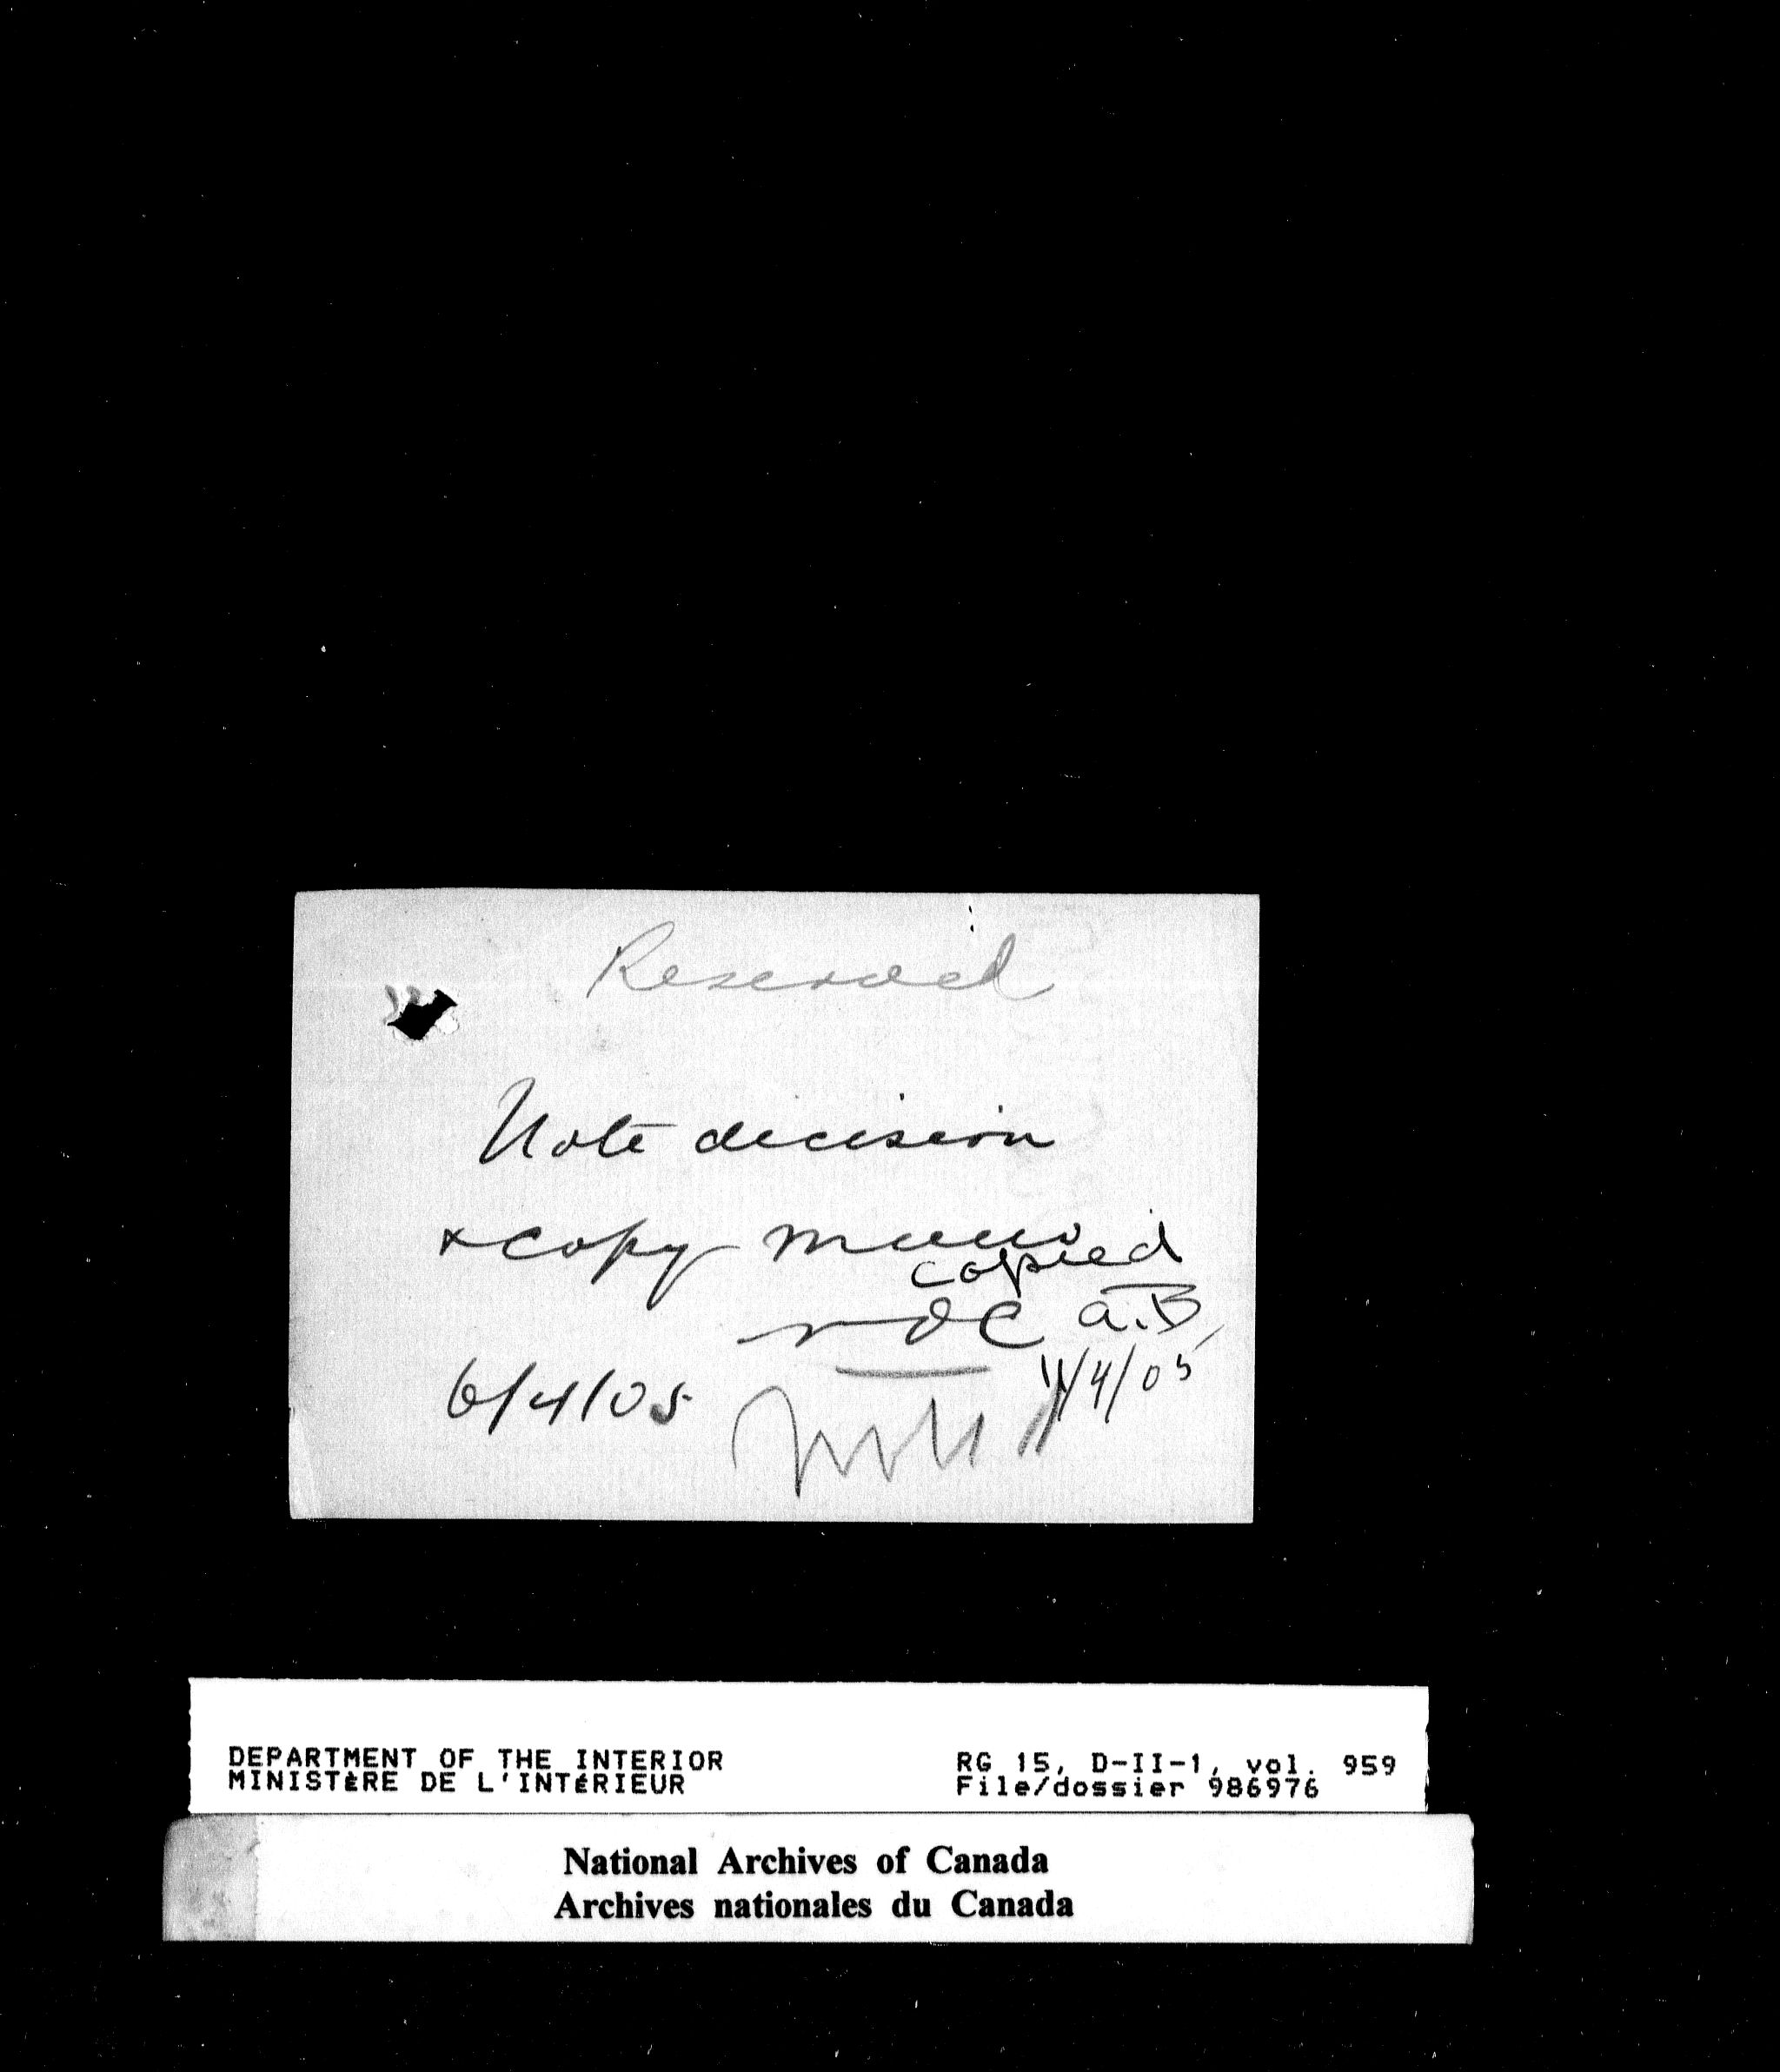 Reserved
Note decision
& copy memo
copied
A.B.
11/4/05
6/4/05
DEPARTMENT OF THE INTERIOR
MINISTÈRE DE L'INTÉRIEUR
RG 15, D-II-1, vol. 959
File/dossier 986976
National Archives of Canada
Archives nationales du Canada